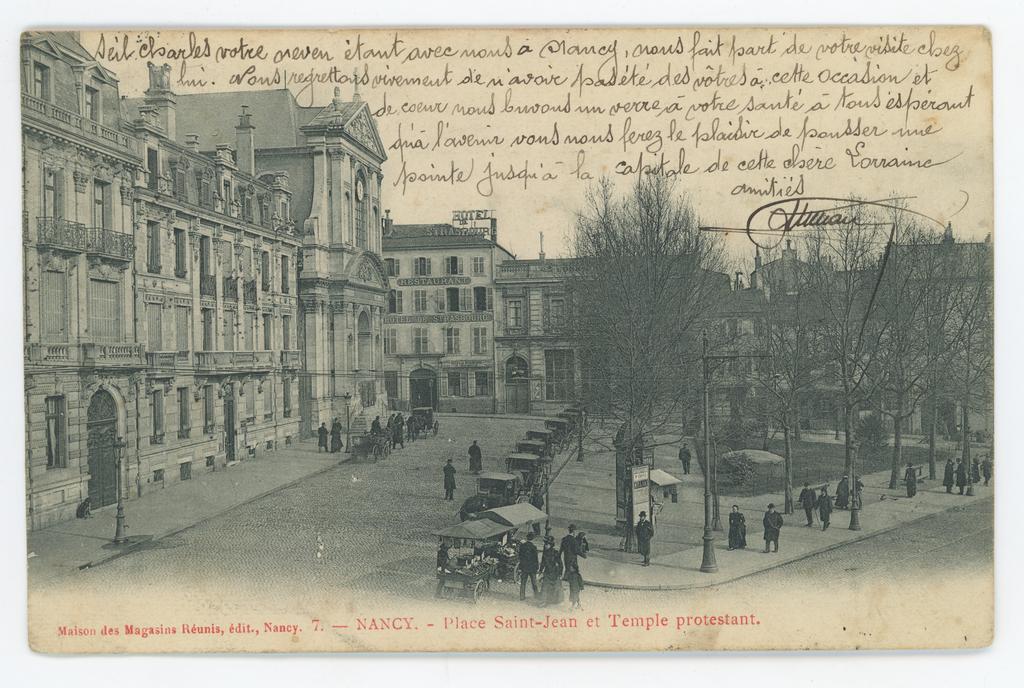 Seil Charles votre neveu étant avec nous à Nancy, nous fait part de votre visite chez
lui. Nous regrettons vivement de n'avoir pas été des vôtres à cette occasion et
de coeur nous buvons un verre à votre santé à tous éspérant
qu'à l'avenir vous nous ferez le plaisir de pousser une
pointe jusqu'à la capitale de cette chère Lorraine
amitiés
HOTEL
STRASBOURG
RESTAURANT
HOTEL DE STRASBOURG
Maison des Magasins Réunis, édit., Nancy. 7. — NANCY. - Place Saint-Jean et Temple protestant.